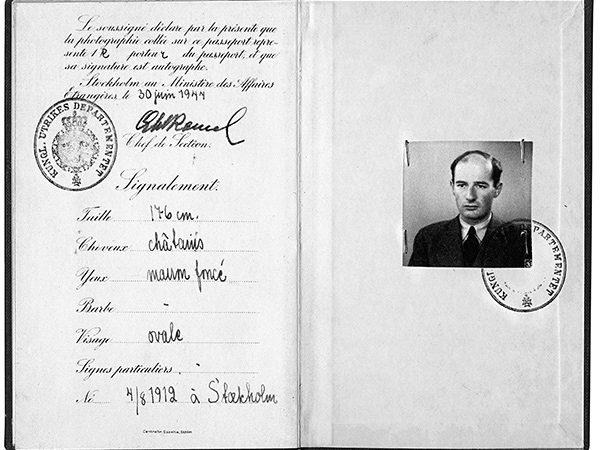 Le soussigné déclare par la présente que
la photographie collée sur ce passeport repré-
sente le porteur du passeport, et que
sa signature est autographe.
Stockholm au Ministère des Affaires
Etrangères, le 30 juin 1944
KUNGL. UTRIKES DEPARTEMENTET
Chef de Section.
Signalement.
Taille 176 cm.
Cheveux châtains
Yeux marron foncé
Barbe -
Visage ovale
Signes particuliers -
Né 4/8 1912 à Stockholm
KUNGL. UTRIKES DEPARTEMENTET